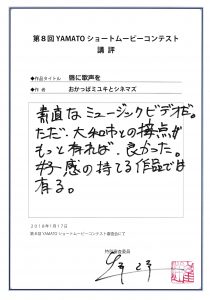 第8回 YAMATO ショートムービーコンテスト
講 評
◆作品タイトル / 唇に歌声を
◆作 者 / おかっぱミユキとシネマズ
素直なミュージックビデオだ。
ただ、大和市との接点が
もっと有れば、良かった。
好感の持てる作品では
有る。
2018年1月17日
第8回 YAMATO ショートムービーコンテスト審査会にて
特別審査委員